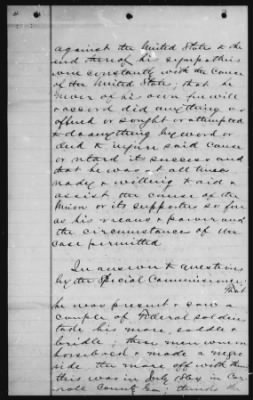 against the United States & the
end thereof his sympathies
were constantly with the cause
of the United States; that he
never of his own free will
& accord did anything or
offered or sought or attempted
to do anything by word or
deed to injure said cause
or retard its success and
that he was at all times
ready & willing to aid &
assist the cause of the
Union or its supporters so far
as his means & power and
the circumstances of the
case permitted
In answer to questions
by the Special Commissioner:
That
he was present & saw a
couple of Federal soldiers
take his mare, saddle &
bridle; these men were on
horseback & made a negro
ride the mare off with them
this was in July in Car-
roll County Ga; thinks the